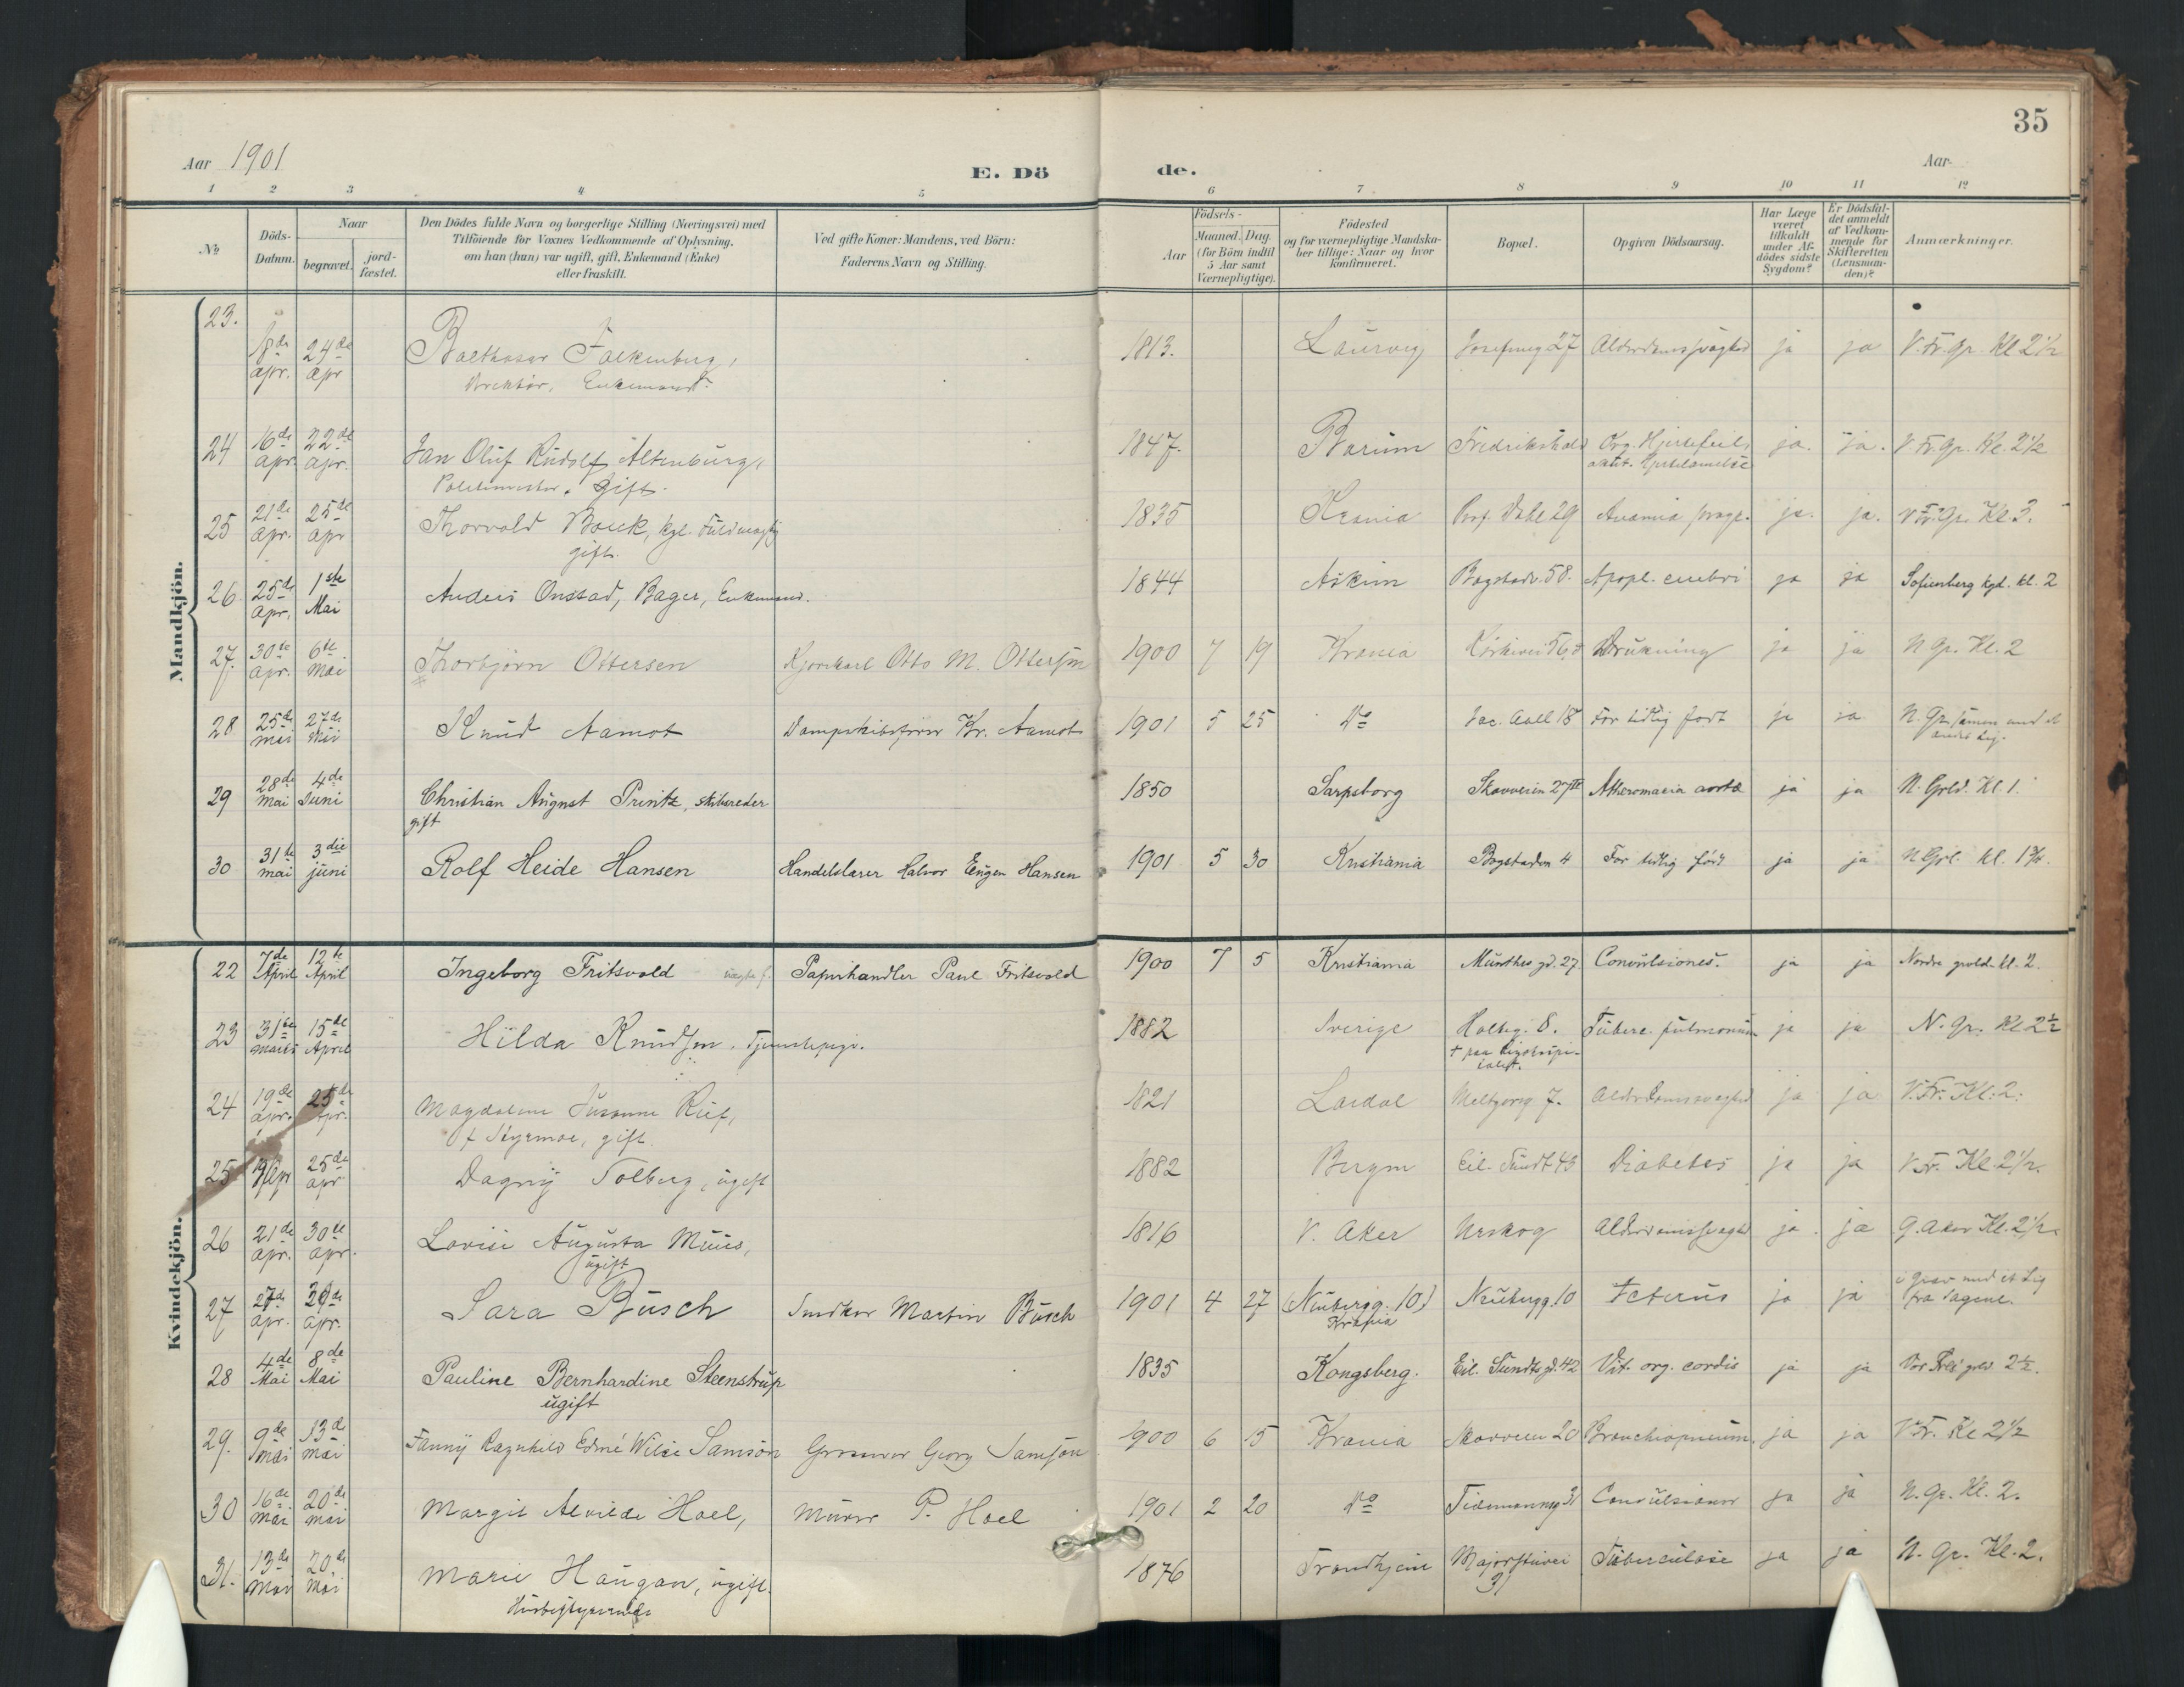 35
Aar 1901
E. Dö
de.
Aar
1 2 3 4 5 6 7 8 9 10 11 12
No
Döds-
Datum.
Naar
begravet.
jord-
fæstet.
Den Dödes fulde Navn og borgerlige Stilling (Næringsvei) med
Tilföiende for Voxnes Vedkommende af Oplysning,
om han (hun) var ugift, gift, Enkemand (Enke)
eller fraskilt.
Ved gifte Koner: Mandens, ved Börn:
Faderens Navn og Stilling.
Födsels-
Aar
Maaned. Dag.
(for Börn indtil
5 Aar samt
Værnepligtige).
Födested
og for værnepligtige Mandska-
ber tillige: Naar og hvor
konfirmeret.
Bopæl.
Opgiven Dödsaarsag.
Har Læge
været
tilkaldt
under Af-
dödes sidste
Sygdom?
Er Dödsfal-
det anmeldt
af Vedkom-
mende for
Skifteretten
(Lensman-
den)?
Anmærkninger.
Mandkjön.
23. 18de 24de Balthasar Falkenberg, 1813. Laurvig 27 Alderdomssvaghed ja ja V. Fr. Gr. Kl 2½
apr. apr Direktör, Enkemand.
24 16de 22de Jan Oluf Rudolf Altenburg, 1847. Bærum Fredrikshald Org. Hjertefeil, ja. ja. V. Fr. Gr. Kl. 2½
apr. apr. Politimester. gift. akut. Hjertelammelse
25 21de 25de Thorvald Boeck, kgl. Fuldmægtig 1835 Krania Prof. Dahl 29 Anæmia progr. ja. ja. V. Fr. Gr. Kl. 3.
apr. apr gift.
26 25de 1ste Anders Onstad, Bager, Enkemand. 1844 Askim Bogstadv. 58. Apopl. cerebri ja ja Sofienberg kgd. kl. 2
apr. Mai
27. 30te 6te Thorbjörn Ottersen Otto M. Ottersen 1900 7 19 Krania Kirkevei 56 Drukning ja ja N. Gr. Kl. 2
apr. Mai
28 25de 27de Knud Aamot Dampskibsförer Kr. Aamot 1901 5 25 Do Jac. Aall 18 For tidlig födt ja ja N. Gr. sammen med et
mai mai andet Lig.
29 28de 4de Christian August Printz, skibsreder 1850 Sarpsborg Skovveien 27 Atheromasia aortæ ja ja N. Grld. Kl 1.
mai Juni gift
30 31te 3die Rolf Heide Hansen Handelslærer Halvor Eugen Hansen 1901 5 30 Kristiania Bogstadvn 4 For tidlig födt ja ja N Grl. kl. 1¾.
mai juni
Kvindekjön.
22 7de 12te Ingeborg Fritsvold Papirhandler Paul Fritsvold 1900 7 5 Kristiania Munthes gd. 27 Convulsiones. ja ja Nordre gravld. kl. 2.
April April
23 31te 15de Hilda Knudsen, Tjenestepige. 1882 Sverige Holbg. 8. Tuberc. pulmonum ja ja N. Gr. Kl 2½
marts April † paa Rigshospi-
talet.
24 19de 25de Magdalene Susanne Rief, 1821 Lærdal Meltzersg 7. Alderdomssvaghed ja ja V. Fr. Kl: 2.
apr. apr. f Styrmoe, gift.
25 19/Apr 25de Dagny Solberg, ugift 1882 Bergen Eil. Sundt 43 Diabetes ja ja V. Fr. Kl 2½.
apr
26 21de 30te Lovise Augusta Muus, 1816 V. Aker Urskog Alderdomssvaghed ja. ja Ö. Aker Kl. 2½.
apr. apr. ugift
27 27de 29de Sara Busch Snedker Martin Busch 1901 4 27 (Neubergg. 10) Neubergg. 10 Icterus ja ja i Grav med et Lig
apr. apr. Krania fra dagene.
28 4de 8de Pauline Bernhardine Steenstrup 1835 Kongsberg. Eil. Sundts gd. 42 Vit. org. cordis ja ja Vor Frels grld 2½.
Mai Mai ugift
29. 9de 13de Fanny Ragnhild Edmé Wilse Samson Grosserer Georg Samson 1900 6 15 Krania Skovveien 20 Bronchiopneum. ja ja V. Fr. Kl 2½
mai mai
30 16de 20de Margit Alvilde Hoel, Murer P. Hoel 1901 2 20 Do Tidemannsg 31 Convulsioner ja ja N. Gr. Kl. 2.
mai mai
31. 13de 20de Marie Haugan, ugift. 1876 Trondhjem Majorstuvei Tuberculose ja ja N. Gr. Kl. 2.
Mai Mai Husbestyrerinde 31